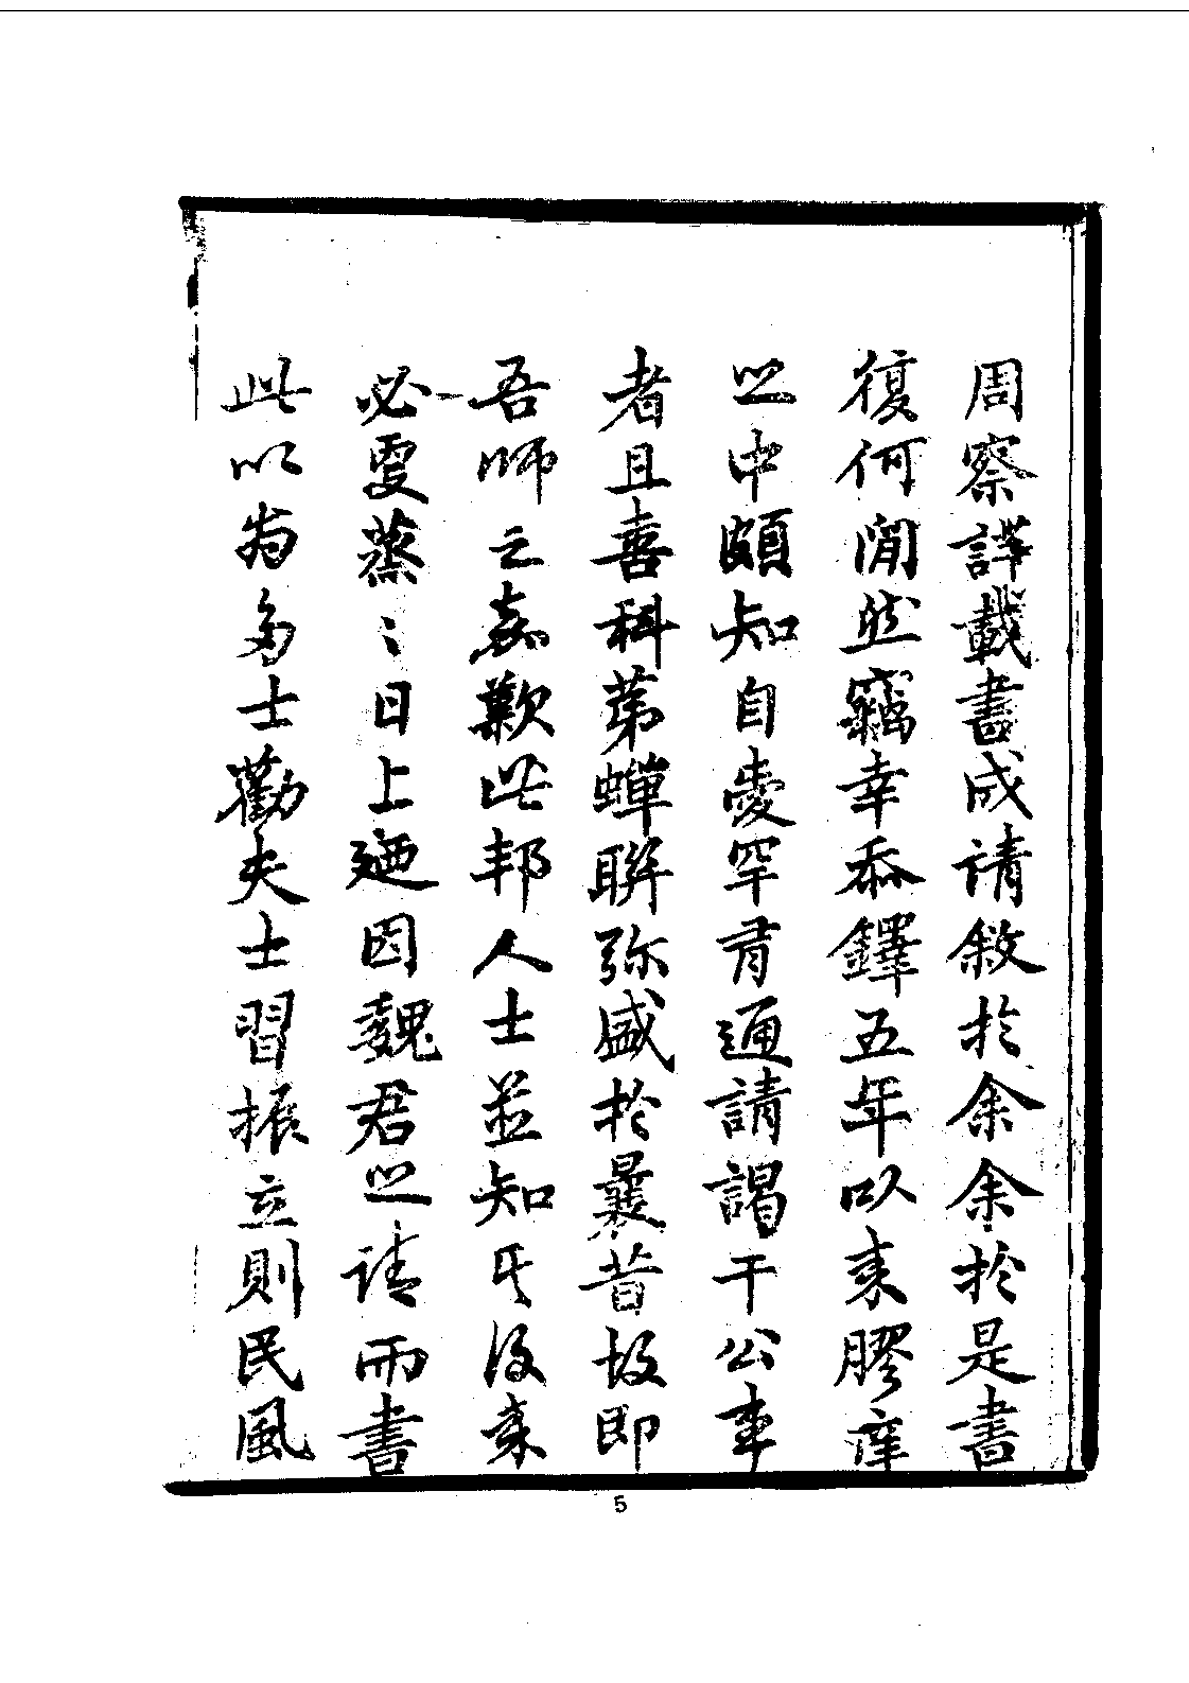 周察譯載書成请敘扵余余扵是書
復何閒然竊幸忝鐸五年以来膠庠
之中頗知自愛罕有通請謁干公事
者且喜科苐蟬聨弥盛扵曩昔故即
吾師之嘉歎此邦人士並知其後来
必更蒸〻日上廼因魏君之请而書
此以為多士勸夫士習振立則民風
5